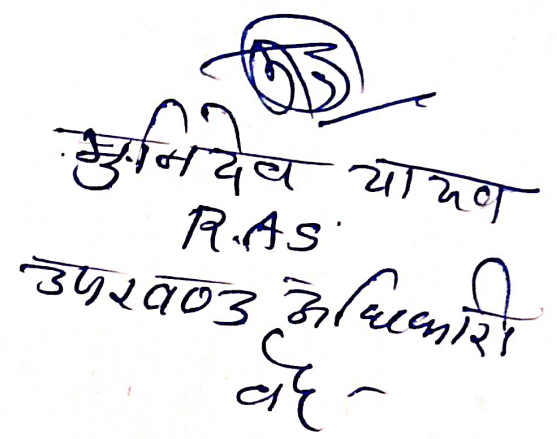 मुनिदेव यादव
R.A.S.
उपखण्ड अधिकारी